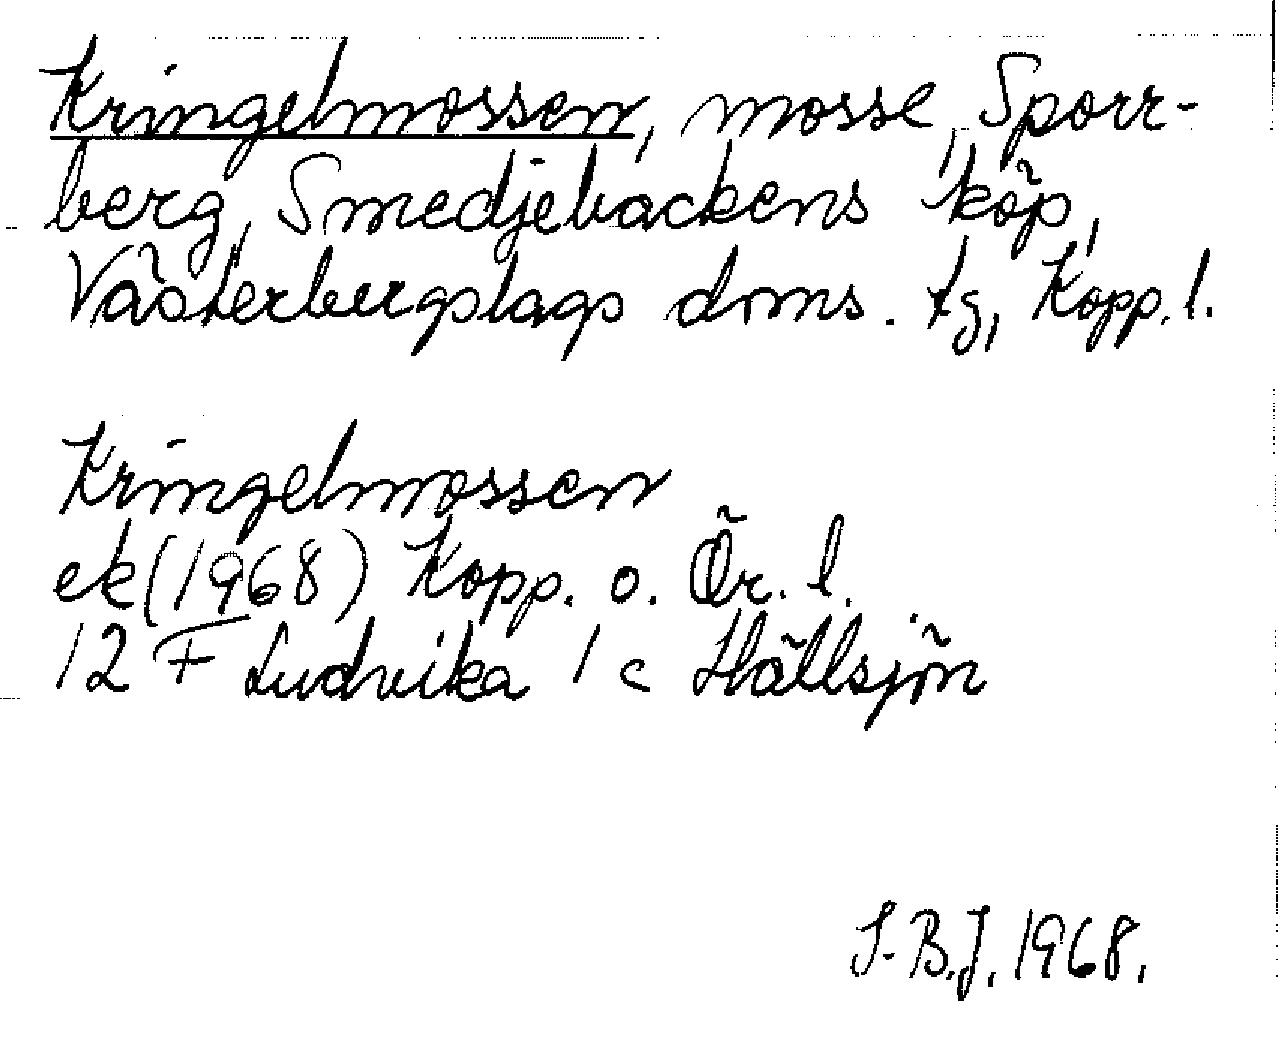 Kringelmossen, mosse, Sporr-
berg, Smedjebackens köp,
Västerbergslags doms. tg, Kopp. l.
Kringelmossen
ek (1968) Kopp. o. Ör. l.
12 F Ludvika 1 c Hällsjön
S-B.J. 1968.